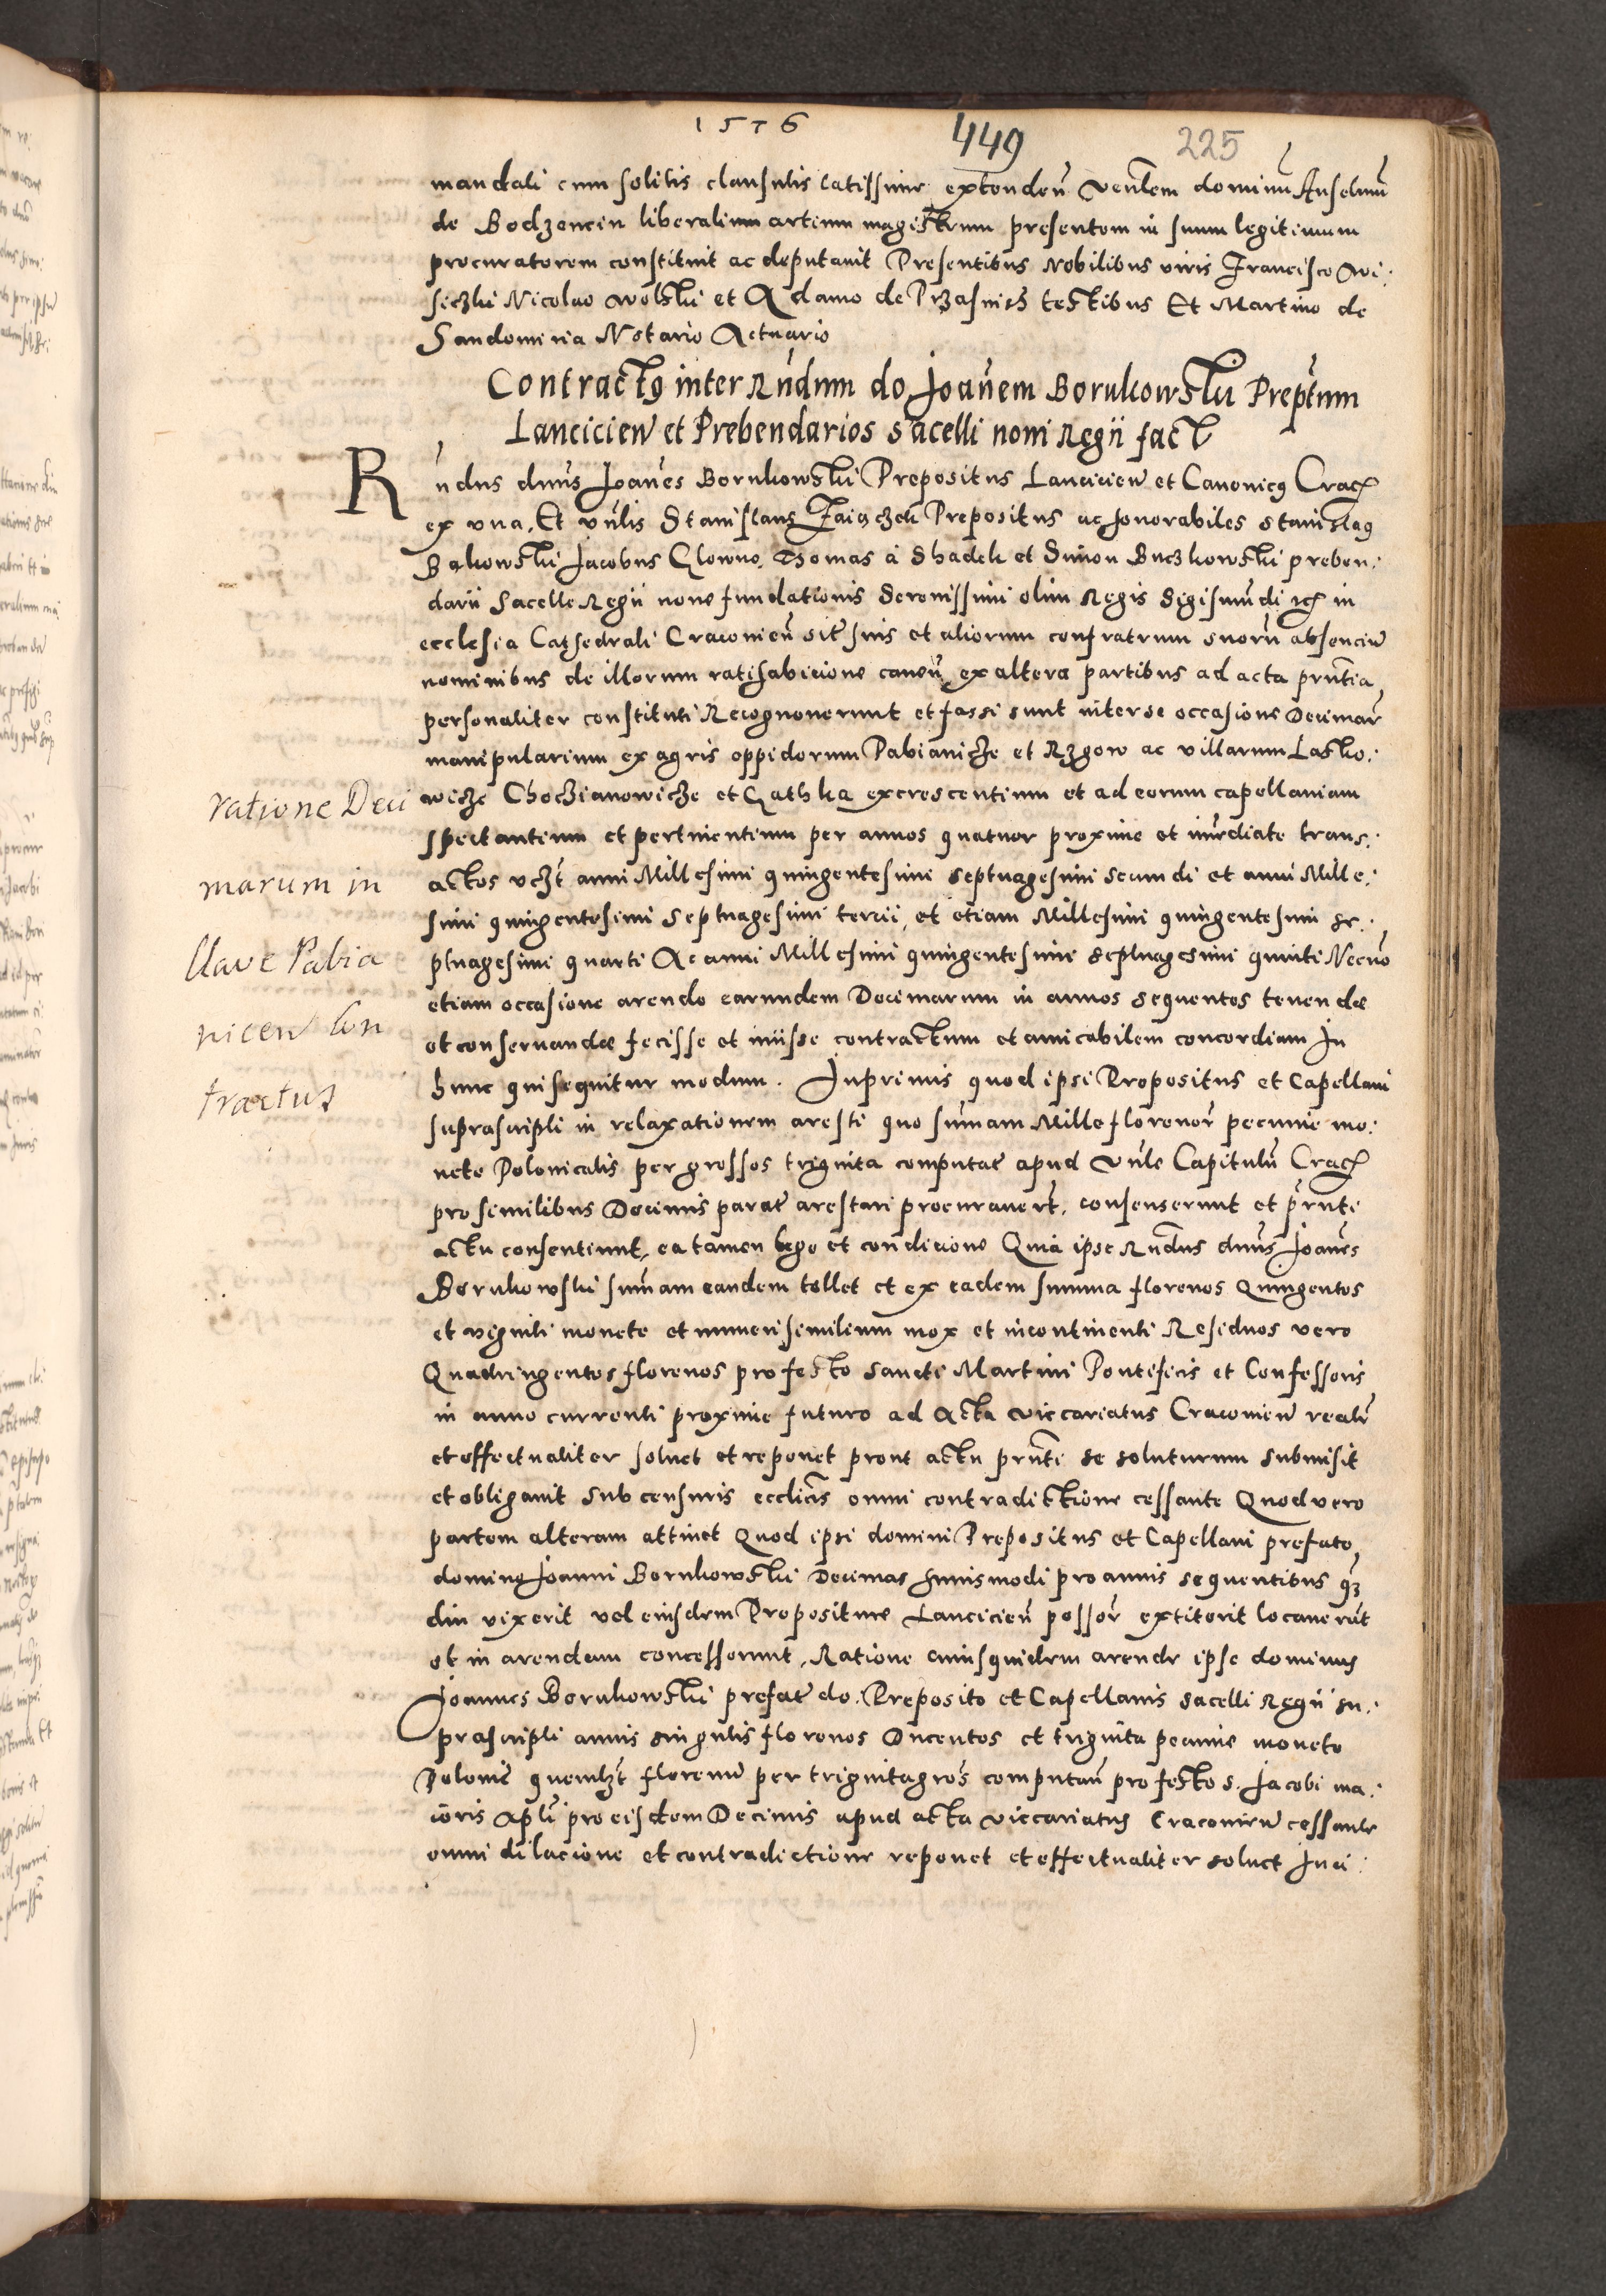 1576
449
225
mandati cum solitis clausulis latissime extenden̄ Venl̄em dominū Anselmū
de Bodzencin liberalium artium magistrum presentem in suum legitimum
procuratorem constituit ac deputavit Presentibus Nobilibus viris Francisco Wi:
siczki Nicolao Wolski et Adamo de Przasnisz testibus Et Martino de
Sandomiria Notario Actuario
Contractus inter Rn̄dum do Joan̄em Borukowski Prep̄tum
Lancicien̄ et Prebendarios sacelli novi Regii fact
Rn̄dus dn̄us Joan̄es Borukowski Prepositus Lancicien̄ et Canonicus Crac̄
ex una, Et vn̄lis Stanislaus Prepositus ac honorabiles Stanislaus
Bąkowski Jacobus Glowno, Thomas à Shadek et Simon Buczkowski preben:
darii Sacelle Regii nove fundationis Serenissimi olim Regis Sigismūdi etc̄ in
ecclesia Cathedrali Cracovien̄ sit̄ suis et aliorum confratrum suorū absenciū
nominibus de illorum ratihabicione caven̄, ex altera partibus ad acta prn̄tia
personaliter constituti Recognoverunt et fassi sunt inter se occasione Decimar̄
manipularium ex agris oppidorum Pabianicze et Rzgow ac villarum Lasko:
wicze Chocżianowicze et Gathka excrescentium et ad eorum capellaniam
ratione Deci
spectantium et pertinentium per annos quatuor proxime et imēdiate trans:
marum in
actos vcz̄t anni Millesimi quingentesimi septuagesimi secundi et anni Mille:
simi quingentesimi septuagesimi tercii, et etiam Millesimi quingentesimi se:
Clave Pabia
ptuagesimi quarti Ac anni Millesimi quingentesimi septuagesimi quinti Necno
etiam occasione arende earundem Decimarum in annos sequentes tenendæ
nicen̄ Con
et conservandæ fecisse et iniisse contractum et amicabilem concordiam In
hunc qui sequitur modum. Inprimis quod ipsi Prepositus et Capellani
tractus
suprascripti in relaxationem aresti quo sum̄am Mille florenor̄ pecunie mo:
nete Polonicalis per grossos triginta computat̄ apud Vn̄le Capitulū Crac̄
pro similibus Decimis parat̄ arestari procuraver̄t, consenserunt et prn̄ti
actu consentiunt, ea tamen lege et condicione Quia ipse Rn̄dus dn̄us Joan̄es
Borukowski sum̄am eandem tollet et ex eadem summa florenos Quingentos
et viginti monete et numeri similium mox et incontinenti Residuos vero
Quadringentos florenos pro festo Sancti Martini Pontificis et Confessoris
in anno currenti proxime futuro ad Acta vicecariatus Cracovien̄ realr̄
et effectualiter solvet et reponet prout actu prn̄ti se soluturum submisit
et obligavit sub censuris eccl̄icis omni contradictione cessante Quod vero
partem alteram attinet Quod ipsi domini Prepositus et Capellani prefato
domino Joanni Borukowski Decimas huiusmodi pro annis sequentibus qz̄
diu vixerit vel eiusdem Prepositure Lancicien̄ possor̄ extiterit locaverūt
et in arendam concesserunt, Ratione cuiusquidem arende ipse dominus
Joannes Borukowski prefat̄ do. Preposito et Capellanis sacelli Regii su:
prascripti annis singulis florenos Ducentos et triginta pecunie monete
Polonic̄ quemlz̄t florenū per triginta gros̄ computan̄ pro festo s. Jacobi ma:
ioris Apl̄i pro eisdem Decimis apud acta vicecariatus Cracovien̄ cessante
omni dilacione et contradictione reponet et effectualiter solvet In ei: